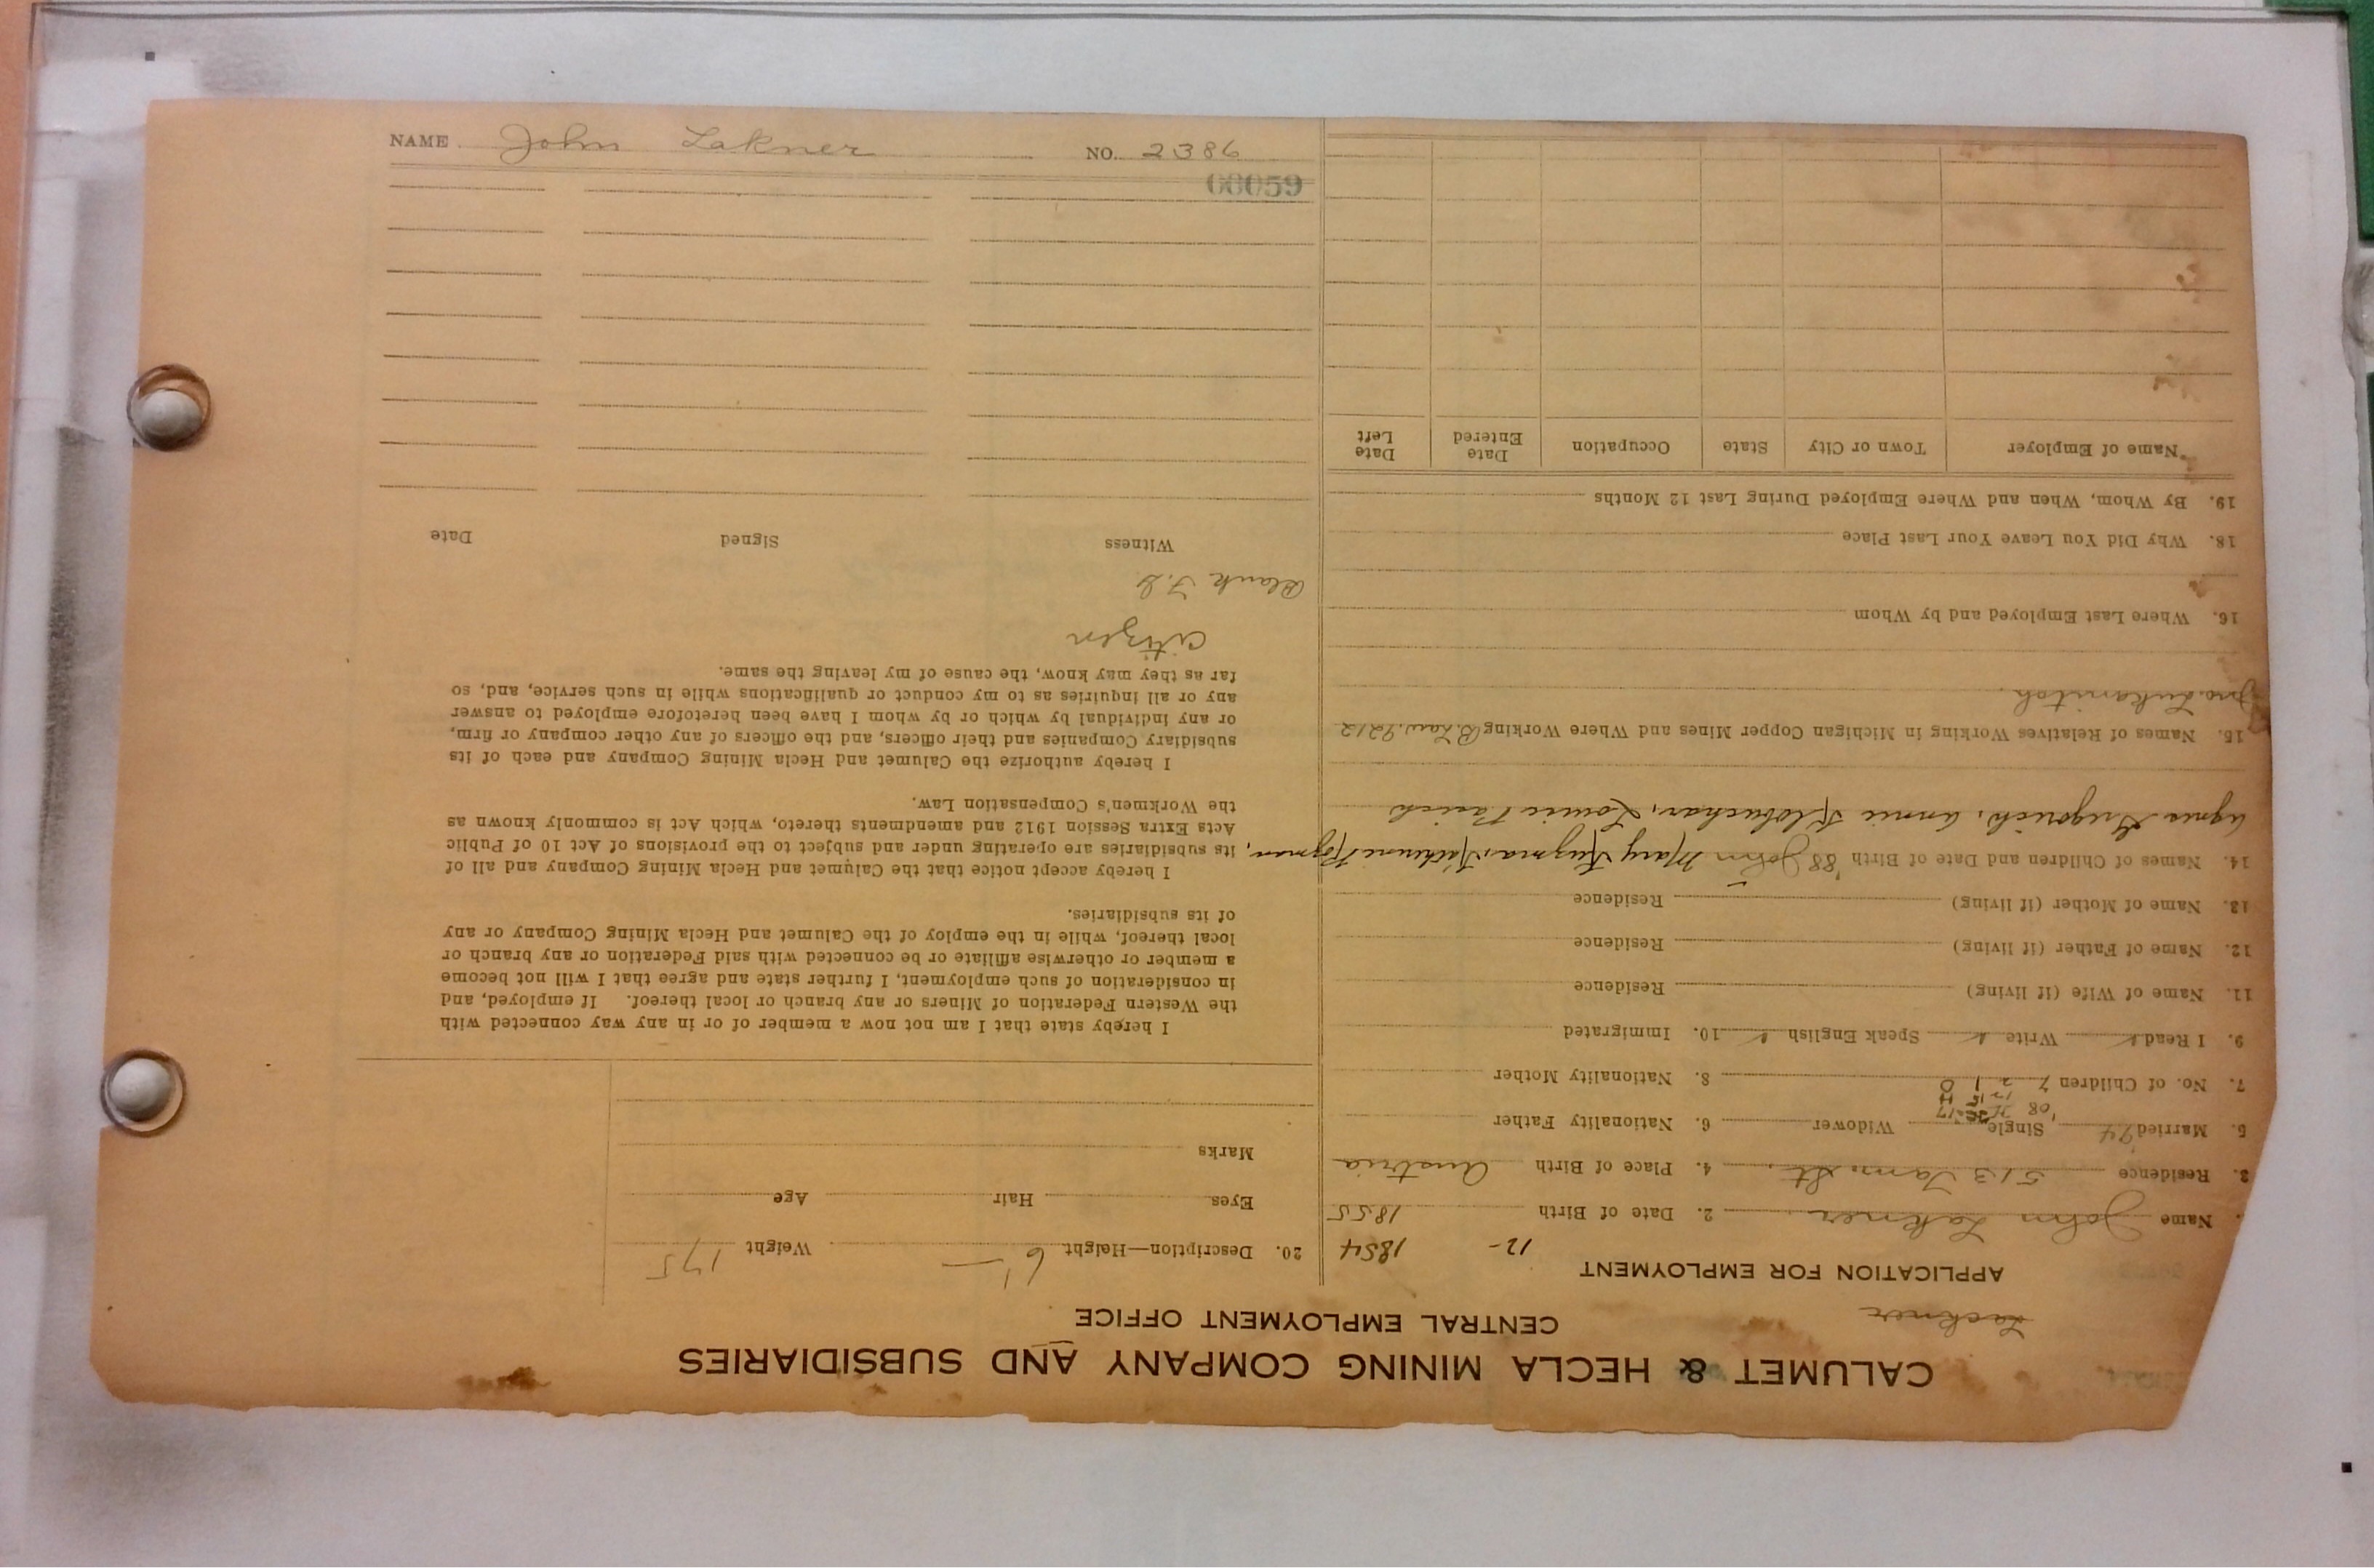 NAME John Lakner NO. 2386
00059
CALUMET & HECLA MINING COMPANY AND SUBSIDIARIES
CENTRAL EMPLOYMENT OFFICE
Lackner
APPLICATION FOR EMPLOYMENT
12- 1854
Name John Lakner 2. Date of Birth 1855
3. Residence 513 Tam. St. 4. Place of Birth Austria
5. Married '74 Single Widower 6. Nationality Father
'08
7. No. of Children 7 2 1 0 8. Nationality Mother
9. I Read Write Speak English 10. Immigrated
11. Name of Wife (if living) Residence
12. Name of Father (if living) Residence
13. Name of Mother (if living) Residence
14. Names of Children and Date of Birth '88 John Mary Kuzma, Katherine Rozman,
Agnes Gregorich, Annie Klobuchar, Louise
15. Names of Relatives Working in Michigan Copper Mines and Where Working B. Law. 9212
Jno.
16. Where Last Employed and by Whom
18. Why Did You Leave Your Last Place
19. By Whom, When and Where Employed During Last 12 Months
Name of Employer Town or City State Occupation Date Entered Date Left
20. Description—Height 6' — Weight 175
Eyes Hair Age
Marks
I hereby state that I am not now a member of or in any way connected with
the Western Federation of Miners or any branch or local thereof. If employed, and
in consideration of such employment, I further state and agree that I will not become
a member or otherwise affiliate or be connected with said Federation or any branch or
local thereof, while in the employ of the Calumet and Hecla Mining Company or any
of its subsidiaries.
I hereby accept notice that the Calumet and Hecla Mining Company and all of
its subsidiaries are operating under and subject to the provisions of Act 10 of Public
Acts Extra Session 1912 and amendments thereto, which Act is commonly known as
the Workmen's Compensation Law.
I hereby authorize the Calumet and Hecla Mining Company and each of its
subsidiary Companies and their officers, and the officers of any other company or firm,
or any individual by which or by whom I have been heretofore employed to answer
any or all inquiries as to my conduct or qualifications while in such service, and, so
far as they may know, the cause of my leaving the same.
Citizen
Blank
Witness Signed Date